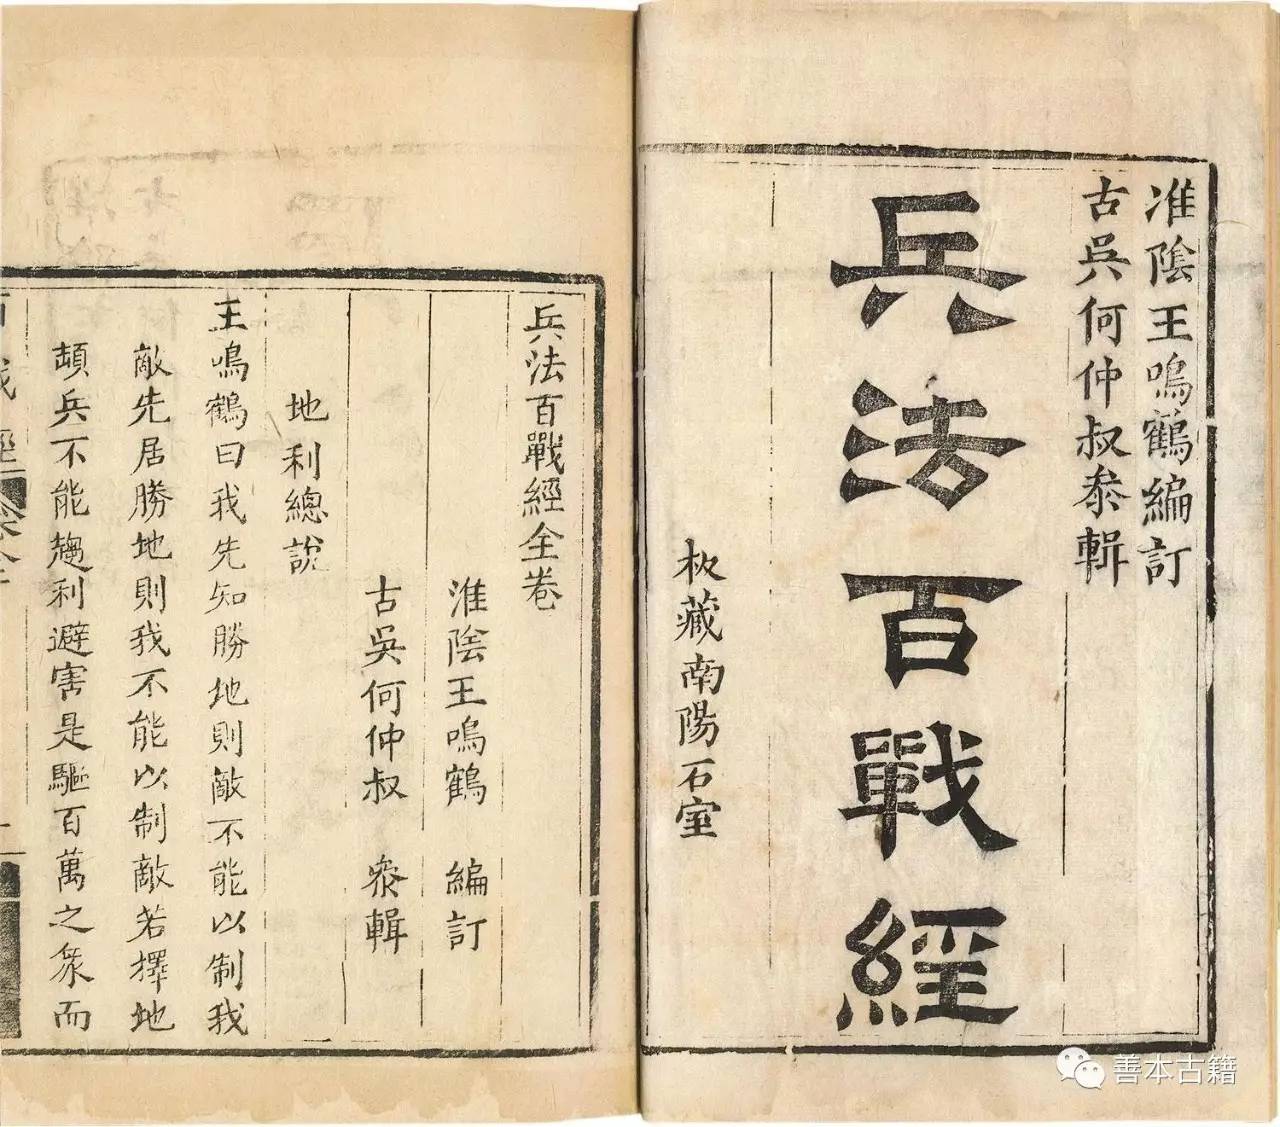 淮陰王鳴鶴編訂
古吳何仲叔叅輯
兵法百戰經
板藏南陽石室
兵法百戰經全卷
淮陰王鳴鶴 編訂
古吳何仲叔 叅輯
地利總說
王鳴鶴曰我先知勝地則敵不能以制我
敵先居勝地則我不能以制敵若擇地
頓兵不能趨利避害是驅百萬之衆而
百戰經
善本古籍